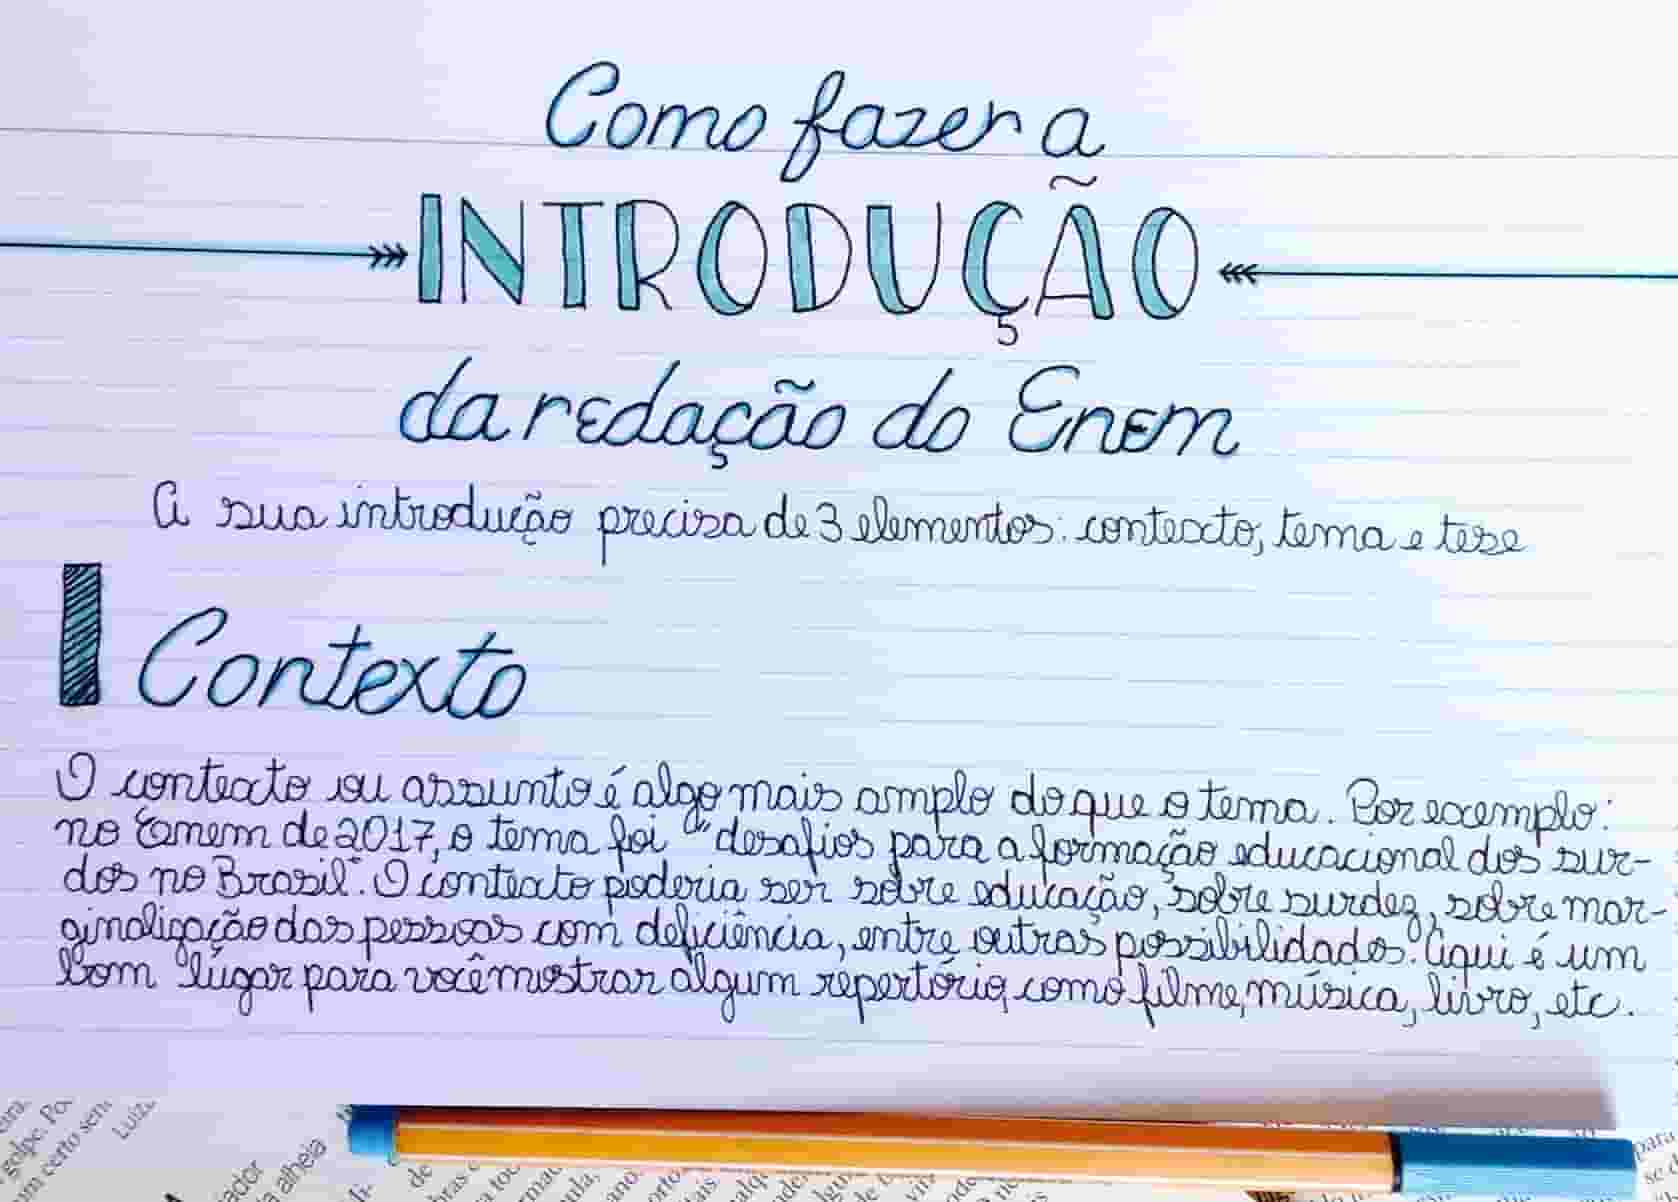 Como fazer a
INTRODUÇÃO
da redação do Enem
A sua introdução precisa de 3 elementos: contexto, tema e tese
Contexto
O contexto ou assunto é algo mais amplo do que o tema. Por exemplo:
no Enem de 2017, o tema foi "desafios para a formação educacional dos sur-
dos no Brasil". O contexto poderia ser sobre educação, sobre surdez, sobre mar-
ginalização das pessoas com deficiência, entre outras possibilidades. Aqui é um
bom lugar para você mostrar algum repertório, como filme, música, livro, etc.
golpe. Po
um certo sem
Luiz
iador
a alheia
de
para